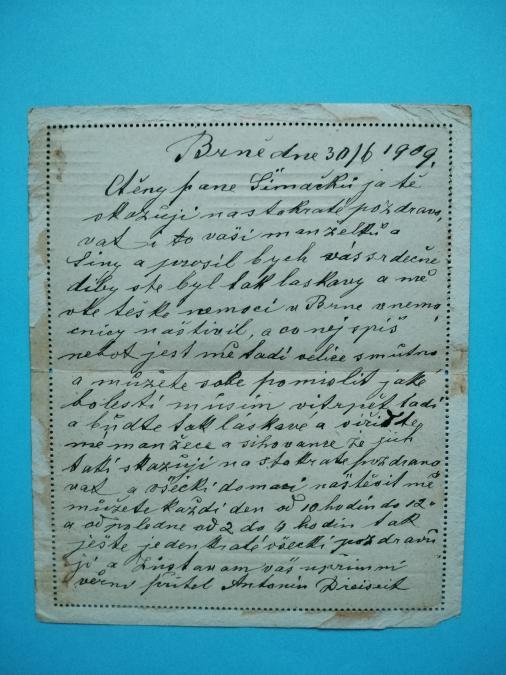 Brně dne 30/6 1909.
Ctěny pane Šimáčků ja tě
okazuji nastokratě pozdravo,
vat i to vaši manželků a
Siny a prosil bych vás srdečně
diby ste byl tak laskavy a mě
vke těške nemoci v Brne v nemo
cnicy naštivil, a co nej spiš
nebot jest mě tadi velice smutno
a můžete sobe pomislit jake
bolesti músim vitrpět tadi
a buďte tak láskave a viřiďte
me manžece a sihovance že jich
taki skazuji na stokratě pozdravo
vat a všecki domaci naštěvit mě
můžete každi den od 10 hodin do 12
a od poledne od 2 do 4 hodin tak
ješte jeden kratě všecki pozdravu
ji a Zustavam váš uprimni
věrni přitel Antonin Dreiseit